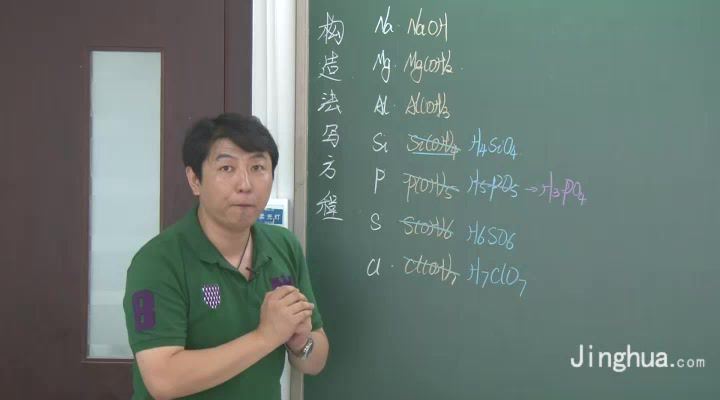 构造法写方程
Na NaOH
Mg Mg(OH)2
Al Al(OH)3
Si Si(OH)4 H4SiO4
P P(OH)5 H5PO5 → H3PO4
S S(OH)6 H6SO6
Cl Cl(OH)7 H7ClO7
8
Jinghua.com